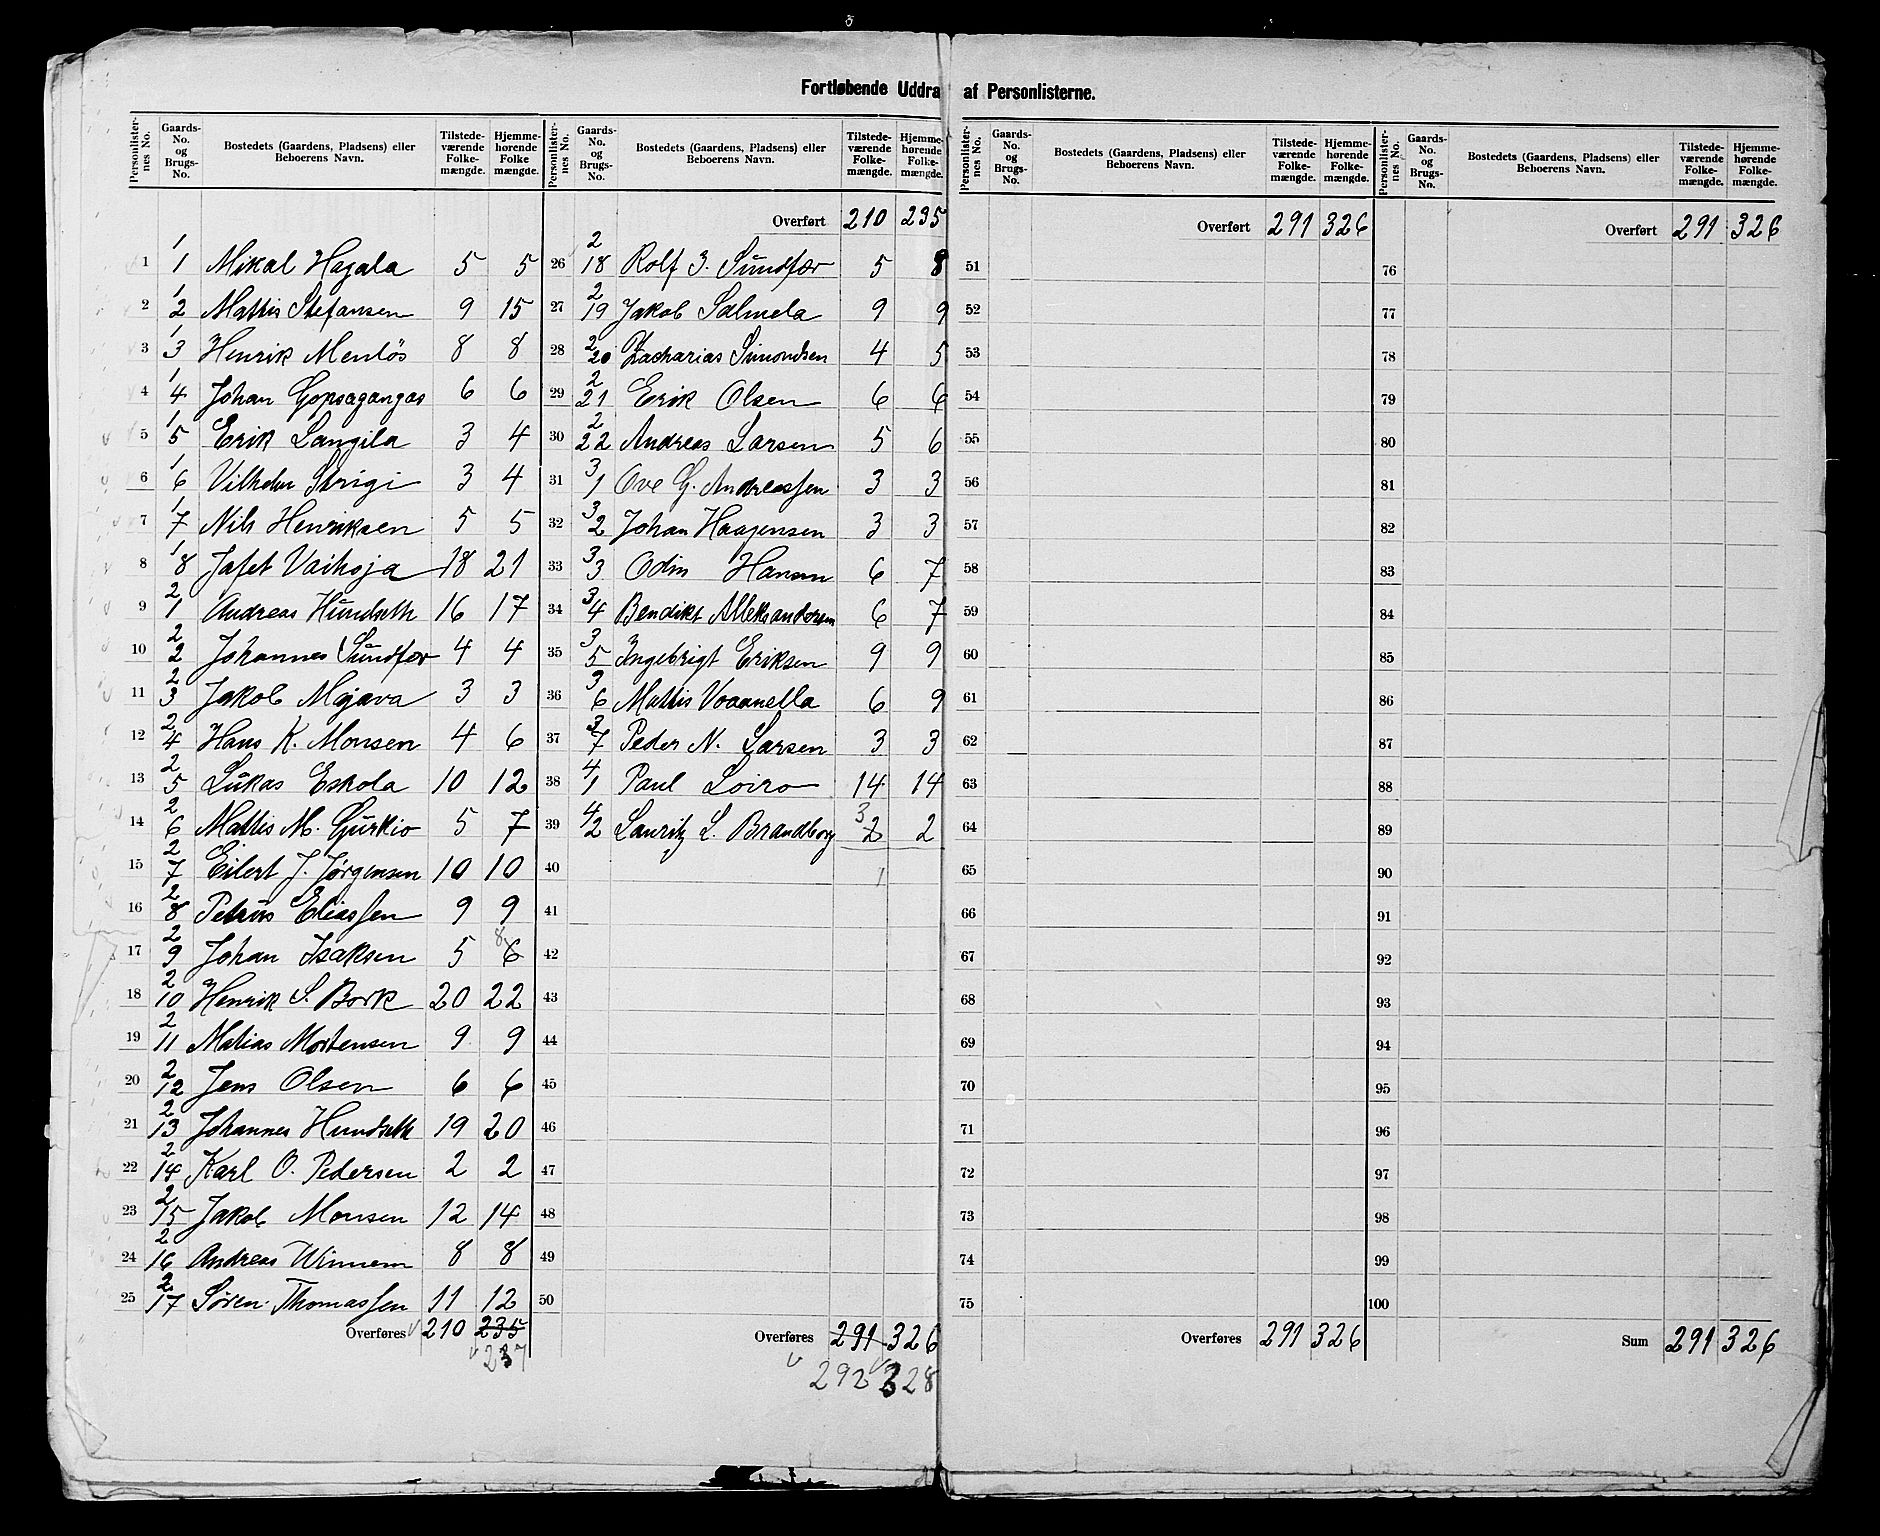 Fortløbende Uddra af Personlisterne.
Personlister-nes No. | Gaards-No. og Brugs-No. | Bostedets (Gaardens, Pladsens) eller Beboerens Navn. | Tilstede-værende Folke-mængde. | Hjemme-hørende Folke mængde.
1 | 1/1 | Mikal Hagala | 5 | 5
2 | 1/2 | Mattis Stefansen | 9 | 15
3 | 1/3 | Henrik Menlös | 8 | 8
4 | 1/4 | Johan Gopsagangas | 6 | 6
5 | 1/5 | Erik Langila | 3 | 4
6 | 1/6 | Vilhelm Strigi | 3 | 4
7 | 1/7 | Nils Henriksen | 5 | 5
8 | 1/8 | Jafet Vaikoja | 18 | 21
9 | 2/1 | Andreas Hundseth | 16 | 17
10 | 2/2 | Johannes Sundfær | 4 | 4
11 | 2/3 | Jakob Majava | 3 | 3
12 | 2/4 | Hans K. Monsen | 4 | 6
13 | 2/5 | Lukas Eskola | 10 | 12
14 | 2/6 | Mattis M. Gurkio | 5 | 7
15 | 2/7 | Eilert J. Jørgensen | 10 | 10
16 | 2/8 | Petrus Eliassen | 9 | 9
17 | 2/9 | Johan Isaksen | 5 | 8 6
18 | 2/10 | Henrik S. Bork | 20 | 22
19 | 2/11 | Matias Mortensen | 9 | 9
20 | 2/12 | Jens Olsen | 6 | 6
21 | 2/13 | Johannes Hundseth | 19 | 20
22 | 2/14 | Karl O. Pedersen | 2 | 2
23 | 2/15 | Jakob Monsen | 12 | 14
24 | 2/16 | Andreas Winnem | 8 | 8
25 | 2/17 | Søren Thomassen | 11 | 12
Overføres | 210 | 235
237
Personlister-nes No. | Gaards-No. og Brugs-No. | Bostedets (Gaardens, Pladsens) eller Beboerens Navn. | Tilstede-værende Folke-mængde. | Hjemme-hørende Folke-mængde.
Overført | 210 | 235
26 | 2/18 | Rolf J. Sundfær | 5 | 8
27 | 2/19 | Jakob Salmela | 9 | 9
28 | 2/20 | Zacharias Simondsen | 4 | 5
29 | 2/21 | Erik Olsen | 6 | 6
30 | 2/22 | Andreas Larsen | 5 | 6
31 | 3/1 | Ove G. Andreassen | 3 | 3
32 | 3/2 | Johan Haagensen | 3 | 3
33 | 3/3 | Odin Hansen | 6 | 7
34 | 3/4 | Bendikt Alleksandersen | 6 | 7
35 | 3/5 | Ingebrigt Eriksen | 9 | 9
36 | 3/6 | Mattis Voaanella | 6 | 9
37 | 3/7 | Peder N. Larsen | 3 | 3
38 | 4/1 | Paul Loiro | 14 | 14
39 | 4/2 | Lauritz L. Brandborg | 3 2 | 2
40 | 1
41
42
43
44
45
46
47
48
49
50
Overføres | 291 | 326
292 328
Personlister-nes No. | Gaards-No. og Brugs-No. | Bostedets (Gaardens, Pladsens) eller Beboerens Navn. | Tilstede-værende Folke-mængde. | Hjemme-hørende Folke-mængde.
Overført | 291 | 326
51
52
53
54
55
56
57
58
59
60
61
62
63
64
65
66
67
68
69
70
71
72
73
74
75
Overføres | 291 | 326
Personlister-nes No. | Gaards-No. og Brugs-No. | Bostedets (Gaardens, Pladsens) eller Beboerens Navn. | Tilstede-værende Folke-mængde. | Hjemme-hørende Folke-mængde.
Overført | 291 | 326
76
77
78
79
80
81
82
83
84
85
86
87
88
89
90
91
92
93
94
95
96
97
98
99
100
Sum | 291 | 326